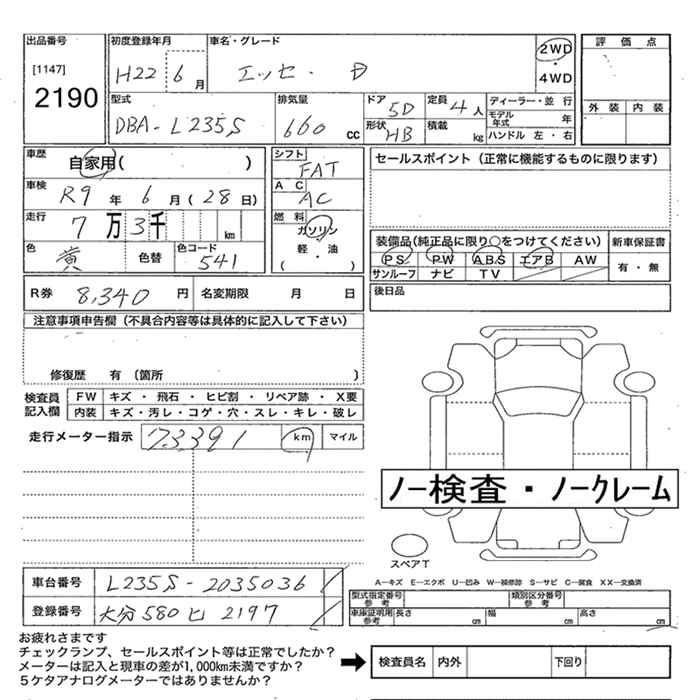 出品番号
[1147]
2190
初度登録年月
H22 6月
車名・グレード
エッセ・D
2WD
・
4WD
評価点
外装 内装
型式
DBA-L235S
排気量
660 cc
ドア
5D
定員
4人
形状
HB
積載
kg
ディーラー・並行
モデル年式 年
ハンドル 左・右
車歴
自家用( )
車検
R9年 6月(28日)
走行
7万3千 km
色
黄
色替
色コード
541
シフト
FAT
AC
AC
燃料
ガソリン
軽・油
( )
セールスポイント(正常に機能するものに限ります)
装備品(純正品に限り○をつけてください)
PS PW ABS エアB AW
サンルーフ ナビ TV
新車保証書
有・無
R券 8,340 円 名変期限 月 日
後日品
注意事項申告欄(不具合内容等は具体的に記入して下さい)
修復歴 有〔箇所 〕
検査員記入欄
FW キズ・飛石・ヒビ割・リペア跡・X要
内装 キズ・汚レ・コゲ・穴・スレ・キレ・破レ
走行メーター指示 73391 km マイル
ノー検査・ノークレーム
スペアT
A―キズ E―エクボ U―凹み W―補修跡 S―サビ C―腐食 XX―交換済
型式指定番号 参考
類別区分番号 参考
車庫証明用 参考
長さ cm 幅 cm 高さ cm
車台番号 L235S-2035036
登録番号 大分580ヒ2197
お疲れさまです
チェックランプ、セールスポイント等は正常でしたか?
メーターは記入と現車の差が1,000km未満ですか?
5ケタアナログメーターではありませんか?
検査員名 内外 下回り